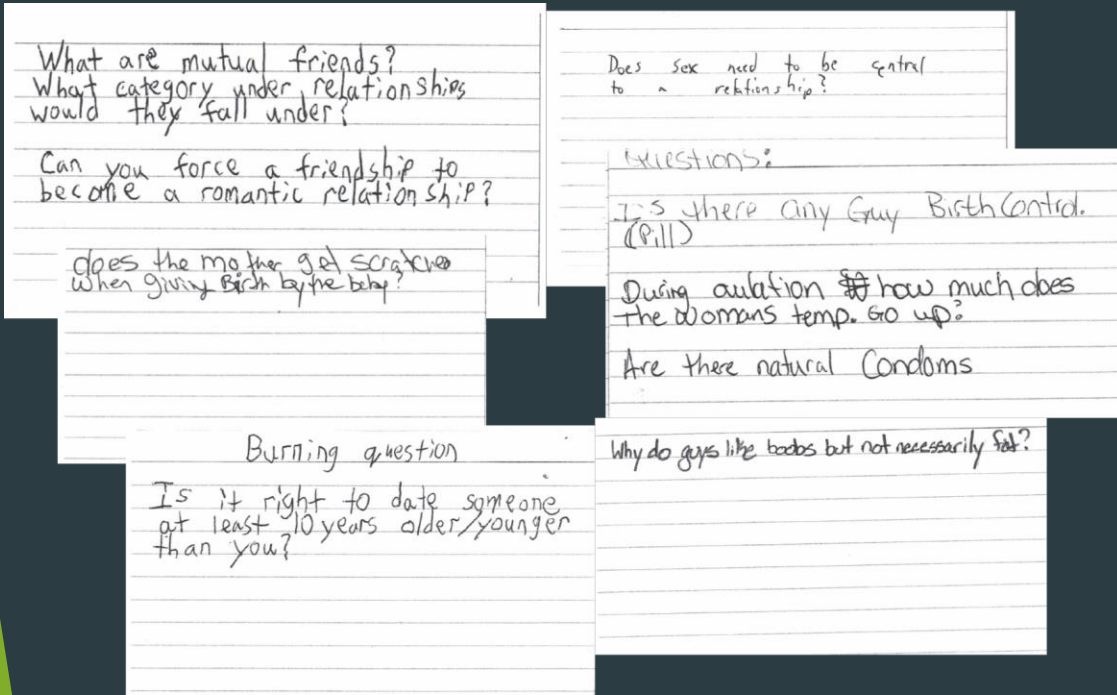 What are mutual friends?
What category under relationships
would they fall under?
Can you force a friendship to
become a romantic relationship?
does the mother get scratched
when giving Birth by the baby?
Burning question
Is it right to date someone
at least 10 years older/younger
than you?
Does sex need to be central
to a relationship?
Questions:
Is there any Guy Birth Control.
(Pill)
During aulation how much does
the womans temp. Go up?
Are there natural Condoms
Why do guys like boobs but not necessarily fat?